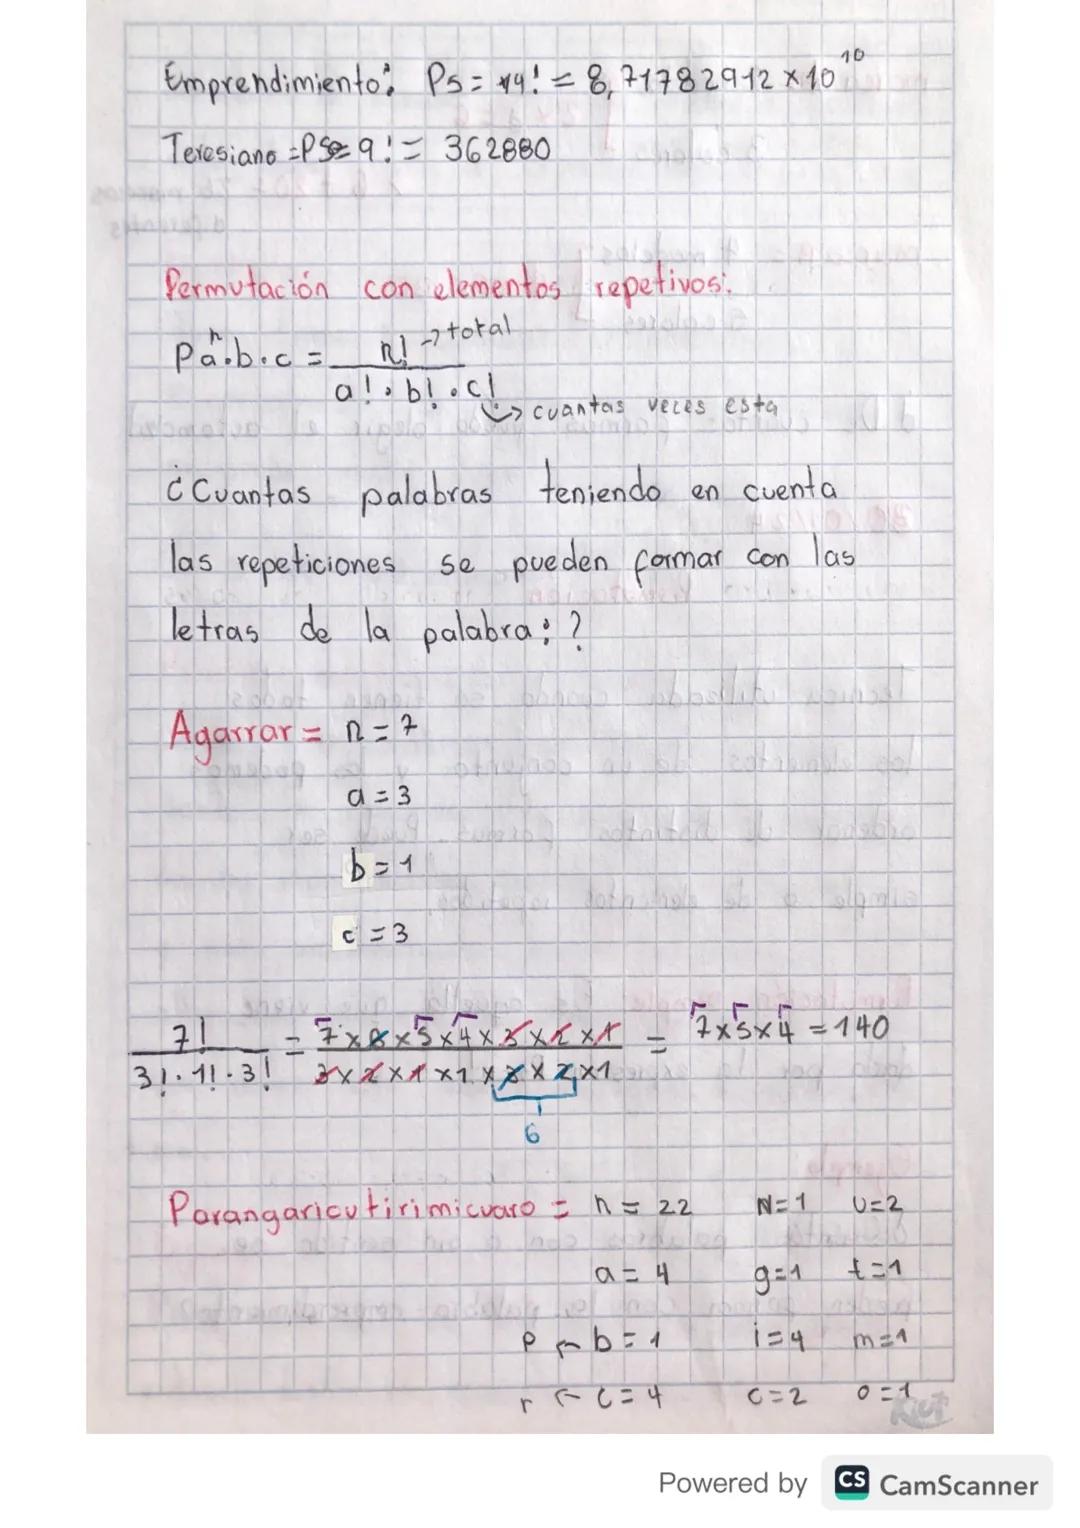 Emprendimiento: Ps = 14! = 8,71782912 x 10^10
Teresiano = Ps = 9! = 362880
Permutación con elementos repetivos:
P^n a.b.c = n! → total
a! . b! . c!
↳ cuantas veces esta
¿Cuantas palabras teniendo en cuenta
las repeticiones se pueden formar con las
letras de la palabra: ?
Agarrar = n = 7
a = 3
b = 1
c = 3
7! / 3! . 1! . 3! = 7 x 6 x 5 x 4 x 3 x 2 x 1 / 3 x 2 x 1 x 1 x 3 x 2 x 1 = 7 x 5 x 4 = 140
6
Parangaricutirimicuaro = n = 22 N=1 U=2
a = 4 g=1 t=1
P ← b = 1 i=4 m=1
r ← c = 4 c=2 o=1
Kiut
Powered by CS CamScanner